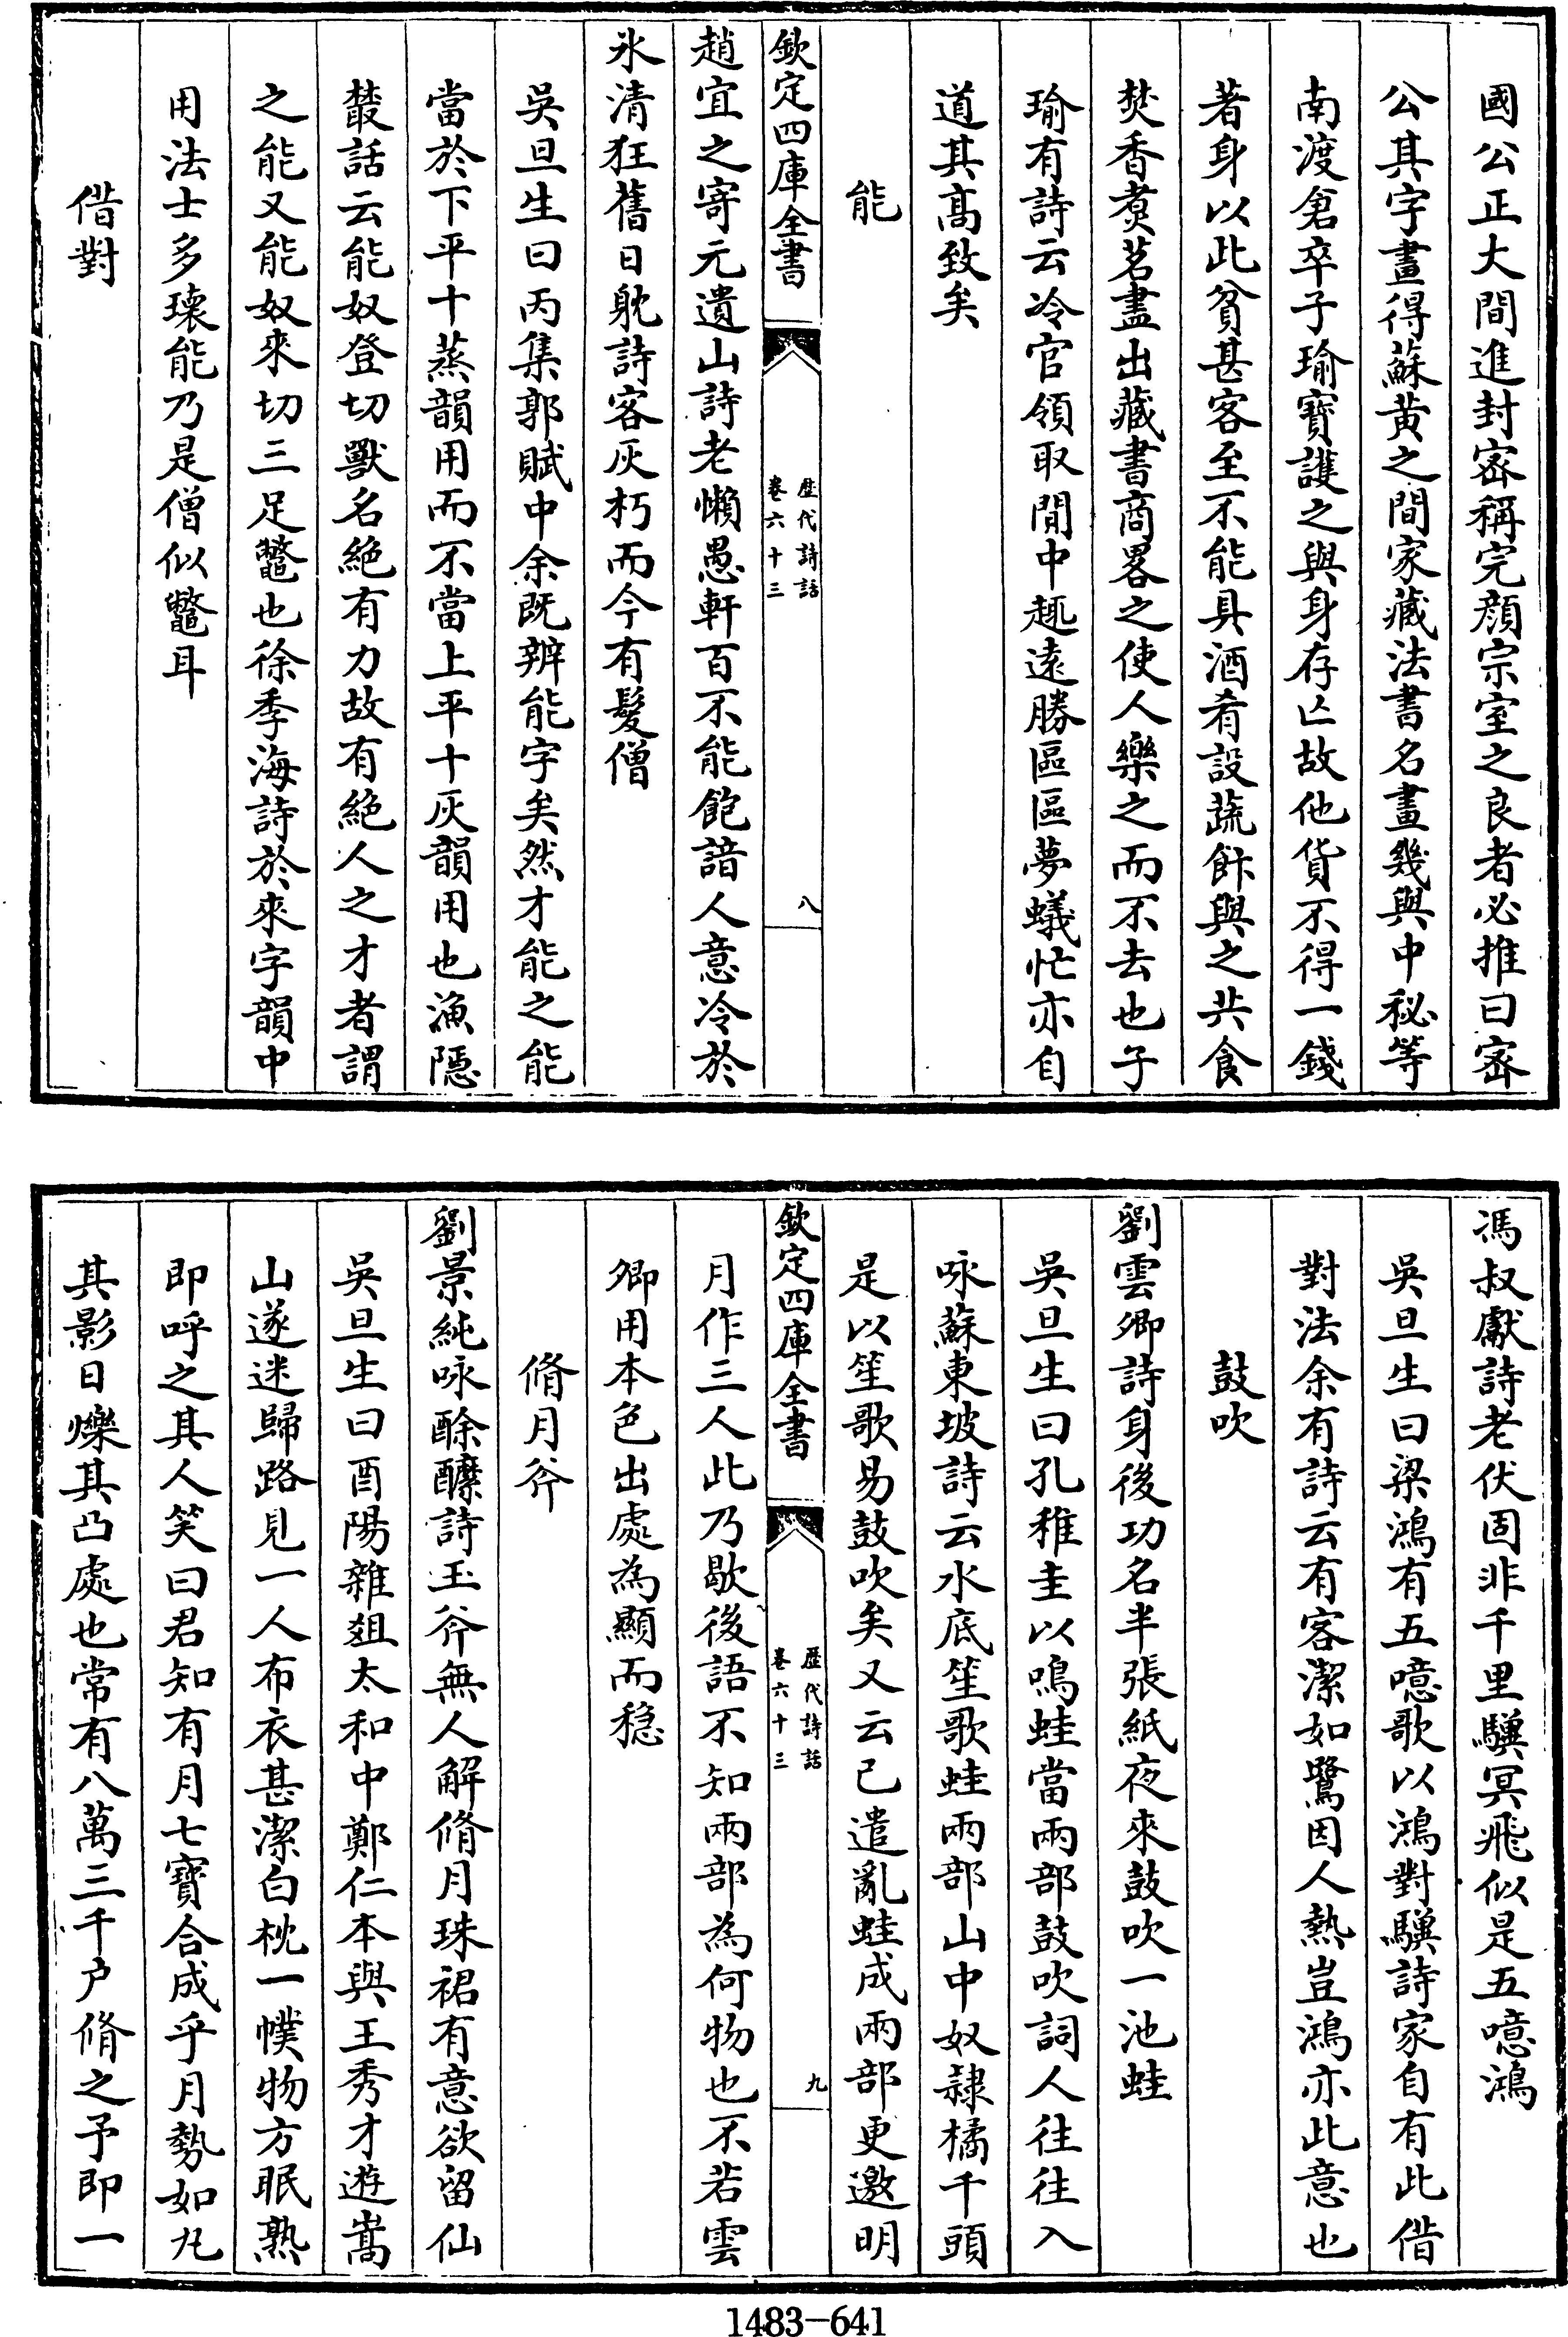 國公正大間進封宻稱完顔宗室之良者必推曰宻
公其字畫得蘇黄之間家藏法書名畫幾與中秘等
南渡倉卒子瑜寳護之與身存亡故他貨不得一錢
著身以此貧甚客至不能具酒肴設蔬飰與之共食
焚香煑茗盡出藏書商畧之使人樂之而不去也子
瑜有詩云冷官領取閒中趣遠勝區區夢蟻忙亦自
道其髙致矣
能
欽定四庫全書
歴代詩話
卷六十三
八
趙宜之寄元遺山詩老懶愚軒百不能飽諳人意冷於
氷清狂舊日躭詩客灰朽而今有髮僧
吳旦生曰丙集郭賦中余既辨能字矣然才能之能
當於下平十蒸韻用而不當上平十灰韻用也漁隱
叢話云能奴登切獸名絶有力故有絶人之才者謂
之能又能奴來切三足鼈也徐季海詩於來字韻中
用法士多瓌能乃是僧似鼈耳
借對
馮叔獻詩老伏固非千里驥冥飛似是五噫鴻
吳旦生曰梁鴻有五噫歌以鴻對驥詩家自有此借
對法余有詩云有客潔如鷺因人熱豈鴻亦此意也
鼓吹
劉雲卿詩身後功名半張紙夜來鼓吹一池蛙
吳旦生曰孔稚圭以鳴蛙當兩部鼓吹詞人往往入
咏蘇東坡詩云水底笙歌蛙兩部山中奴隷橘千頭
是以笙歌易鼓吹矣又云已遣亂蛙成兩部更邀明
欽定四庫全書
歴代詩話
卷六十三
九
月作三人此乃歇後語不知兩部為何物也不若雲
卿用本色出處為顯而穏
脩月斧
劉景純咏酴醿詩玉斧無人解脩月珠裙有意欲留仙
吳旦生曰酉陽雜爼太和中鄭仁本與王秀才遊嵩
山遂迷歸路見一人布衣甚潔白枕一幞物方眠熟
即呼之其人笑曰君知有月七寳合成乎月勢如丸
其影日爍其凸處也常有八萬三千户脩之予即一
1483-641